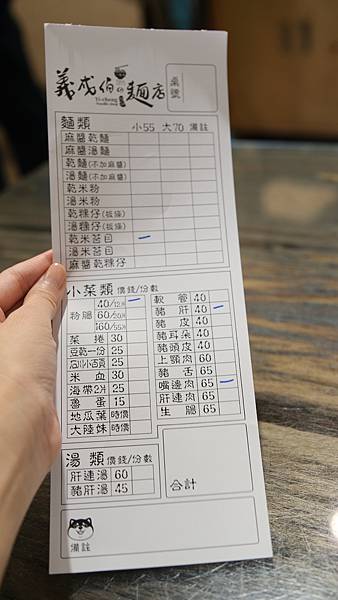 義成伯の麵店
Yi-cheng
Noodle shop
桌號
麵類 小55 大70 備註
麻醬乾麵
麻醬湯麵
乾麵(不加麻醬)
湯麵(不加麻醬)
乾米粉
湯米粉
乾粿仔(板條)
湯粿仔(板條)
乾米苔目
湯米苔目
麻醬乾粿仔
小菜類 價錢/份數
粉腸 40/12片
60/20片
160/55片
菜捲 30
豆乾一份 25
25
米血 30
海帶2片 25
魯蛋 15
地瓜葉 時價
大陸妹 時價
軟管 40
豬肝 40
豬皮 40
豬耳朵 40
豬頭皮 40
上顎肉 60
豬舌 65
嘴邊肉 65
肝連肉 65
生腸 65
湯類 價錢/份數
肝連湯 60
豬肝湯 45
合計
備註